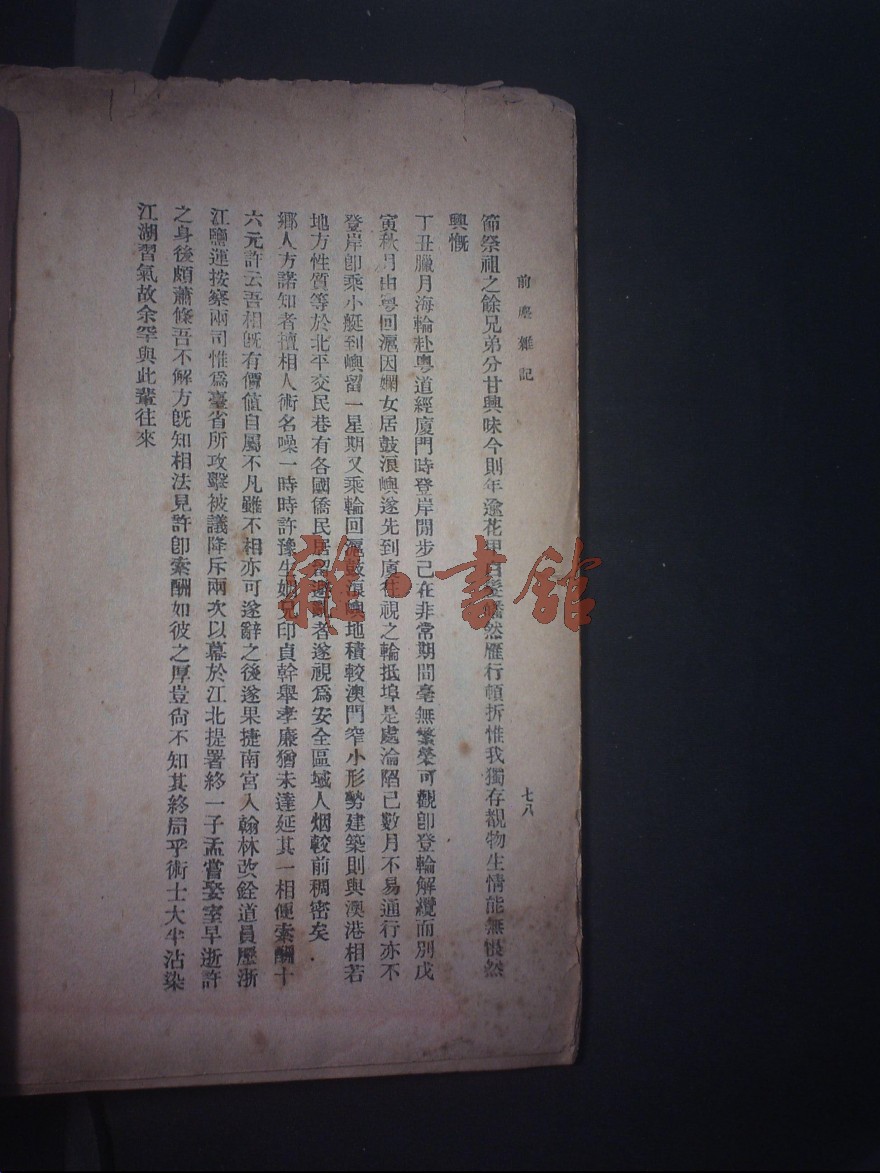 前塵雜記
七八
節祭祖之餘兄弟分甘興味今則年逾花甲白髮皤然雁行頓折惟我獨存覩物生情能無悵然
興慨
丁丑臘月海輪赴粵道經廈門時登岸閒步己在非常期間毫無繁榮可觀卽登輪解纜而別戊
寅秋月由粵回滬因嫻女居鼓浪嶼遂先到廈往視之輪抵埠是處淪陷已數月不易通行亦不
登岸卽乘小艇到嶼留一星期又乘輪回滬鼓浪嶼地積較澳門窄小形勢建築則與澳港相若
地方性質等於北平交民巷有各國僑民居留避亂者遂視爲安全區域人烟較前稠密矣
鄉人方諾知者擅相人術名噪一時時許豫生姻兄印貞幹舉孝廉猶未達延其一相便索酬十
六元許云吾相旣有價値自屬不凡雖不相亦可遂辭之後遂果捷南宮入翰林改銓道員歷浙
江鹽運按察兩司惟爲臺省所攻擊被議降斥兩次以幕於江北提署終一子孟嘗娶室早逝許
之身後頗蕭條吾不解方旣知相法見許卽索酬如彼之厚豈尙不知其終局乎術士大半沾染
江湖習氣故余罕與此輩往來
雜·書館